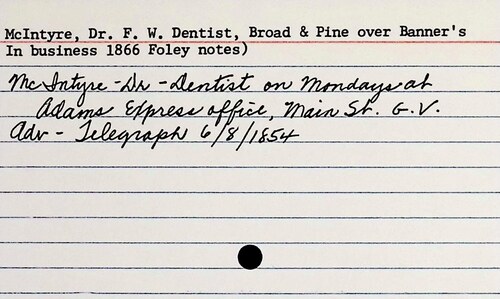 McIntyre, Dr. F. W. Dentist, Broad & Pine over Banner's
In business 1866 Foley notes)
McIntyre - Dr - Dentist on Mondays at
Adams Express office, Main St. G.V.
Adv - Telegraph 6/8/1854